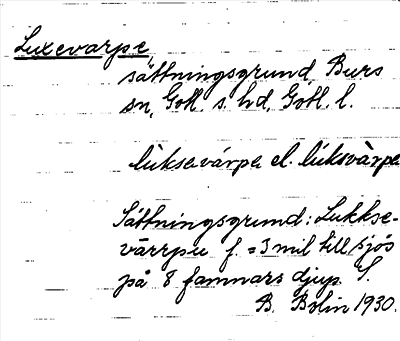 Luxevarpe,
sättningsgrund, Burs
sn, Gotl. s. hd, Gotl. l.
lùksevárpe el. lúksvàrpe
Sättningsgrund: Lukkse-
värrpu f. = 3 mil till sjös
på 8 famnars djup. S.
B. Bolin 1930.